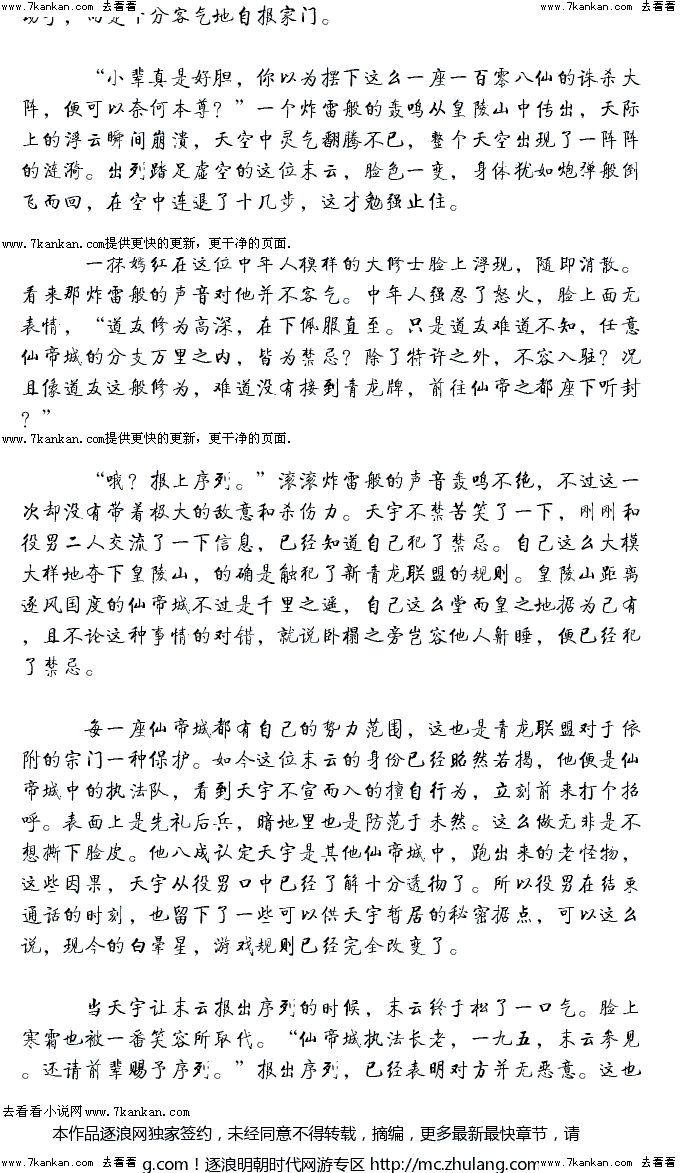 www.7kankan.com 去看看 www.7kankan.com 去看看 www.7kankan.com 去看看
分客气地自报家门。
“小辈真是好胆，你以为摆下这么一座一百零八仙的诛杀大
阵，便可以奈何本尊？”一个炸雷般的轰鸣从皇陵山中传出，天际
上的浮云瞬间崩溃，天空中灵气翻腾不已，整个天空出现了一阵阵
的涟漪。出列踏足虚空的这位束云，脸色一变，身体犹如炮弹般倒
飞而回，在空中连退了十几步，这才勉强止住。
www.7kankan.com提供更快的更新，更干净的页面.
一抹嫣红在这位中年人模样的大修士脸上浮现，随即消散。
看来那炸雷般的声音对他并不客气。中年人强忍了怒火，脸上面无
表情，“道友修为高深，在下佩服直至。只是道友难道不知，任意
仙帝城的分支万里之内，皆为禁忌？除了特许之外，不容入驻？况
且像道友这般修为，难道没有接到青龙牌，前往仙帝之都座下听封
？”
www.7kankan.com提供更快的更新，更干净的页面.
“哦？报上序列。”滚滚炸雷般的声音轰鸣不绝，不过这一
次却没有带着极大的敌意和杀伤力。天宇不禁苦笑了一下，刚刚和
役男二人交流了一下信息，已经知道自己犯了禁忌。自己这么大模
大样地夺下皇陵山，的确是触犯了新青龙联盟的规则。皇陵山距离
逐风国度的仙帝城不过是千里之遥，自己这么堂而皇之地据为己有
，且不论这种事情的对错，就说卧榻之旁岂容他人鼾睡，便已经犯
了禁忌。
每一座仙帝城都有自己的势力范围，这也是青龙联盟对于依
附的宗门一种保护。如今这位束云的身份已经昭然若揭，他便是仙
帝城中的执法队，看到天宇不宣而入的擅自行为，立刻前来打个招
呼。表面上是先礼后兵，暗地里也是防范于未然。这么做无非是不
想撕下脸皮。他八成认定天宇是其他仙帝城中，跑出来的老怪物，
这些因果，天宇从役男口中已经了解十分透彻了。所以役男在结束
通话的时刻，也留下了一些可以供天宇暂居的秘密据点，可以这么
说，现今的白晕星，游戏规则已经完全改变了。
当天宇让束云报出序列的时候，束云终于松了一口气。脸上
寒霜也被一番笑容所取代。“仙帝城执法长老，一九五，束云参见
。还请前辈赐予序列。”报出序列，已经表明对方并无恶意。这也
去看看小说网www.7kankan.com
本作品逐浪网独家签约，未经同意不得转载，摘编，更多最新最快章节，请
www.7kankan.com 去看看 g.com！逐浪明朝时代网游专区 http://mc.zhulang.com www.7kankan.com 去看看